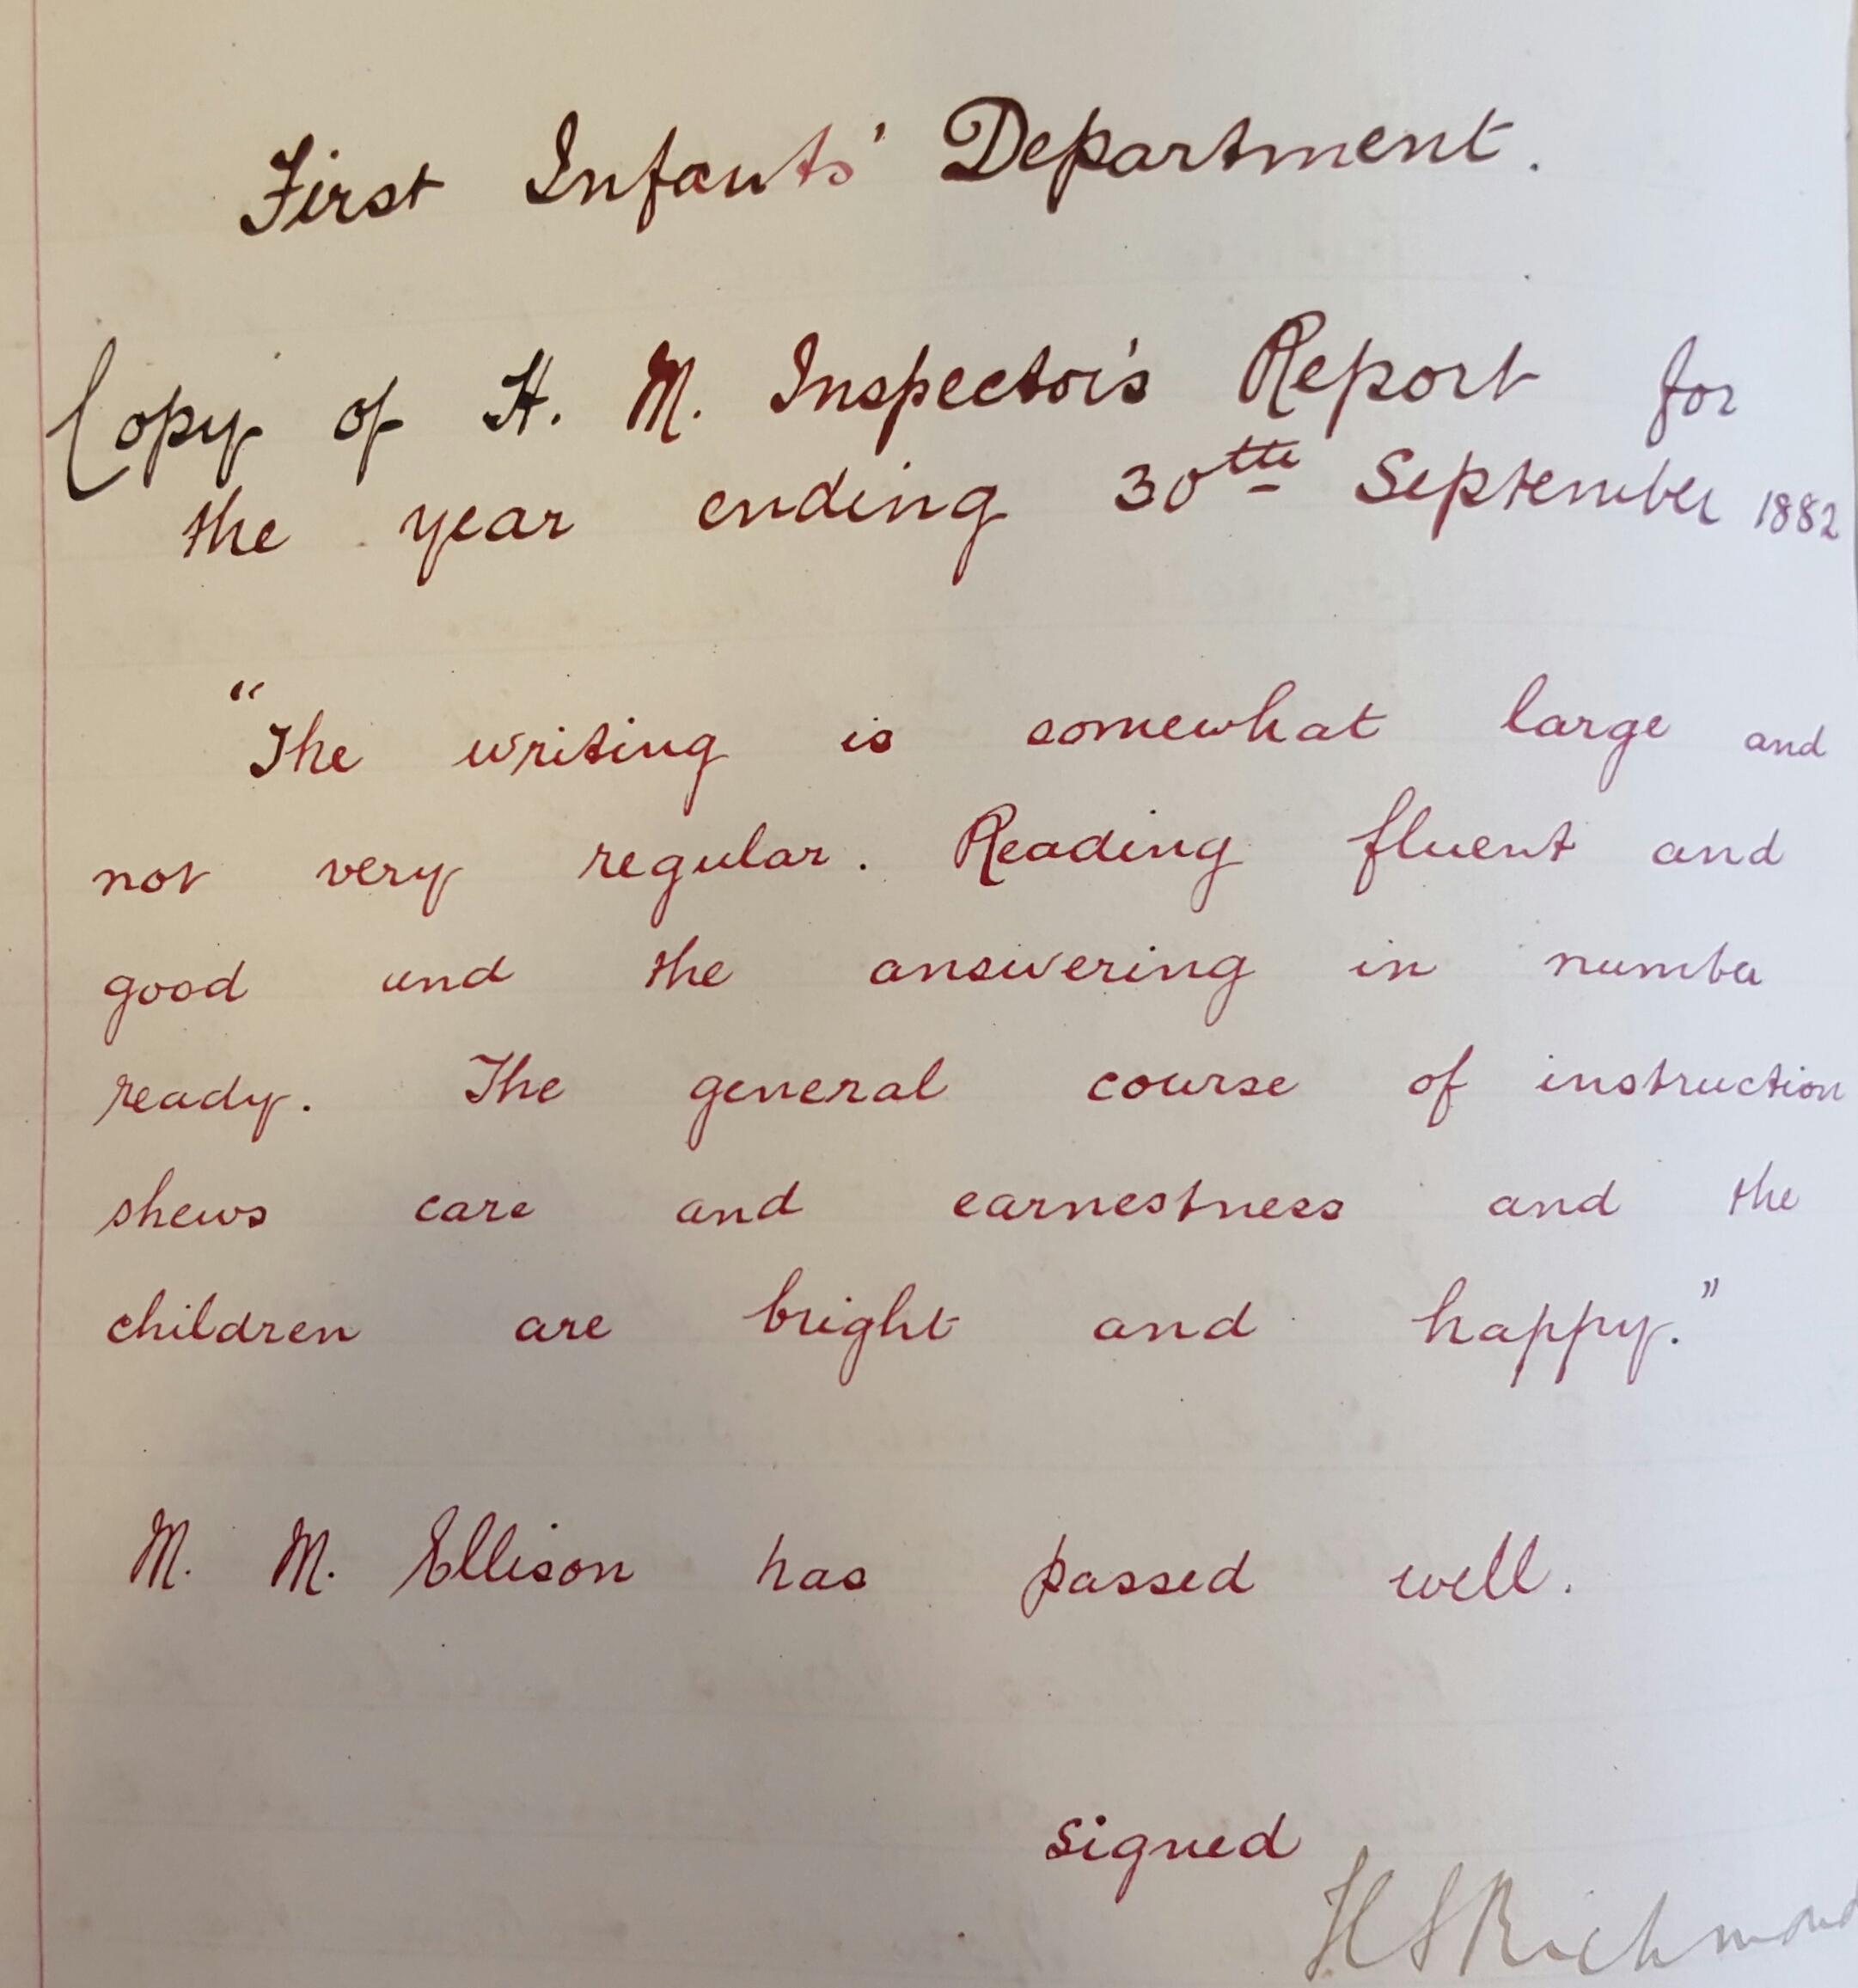 First Infants' Department.
Copy of H. M. Inspector's Report for
the year ending 30th September 1882
"The writing is somewhat large and
not very regular. Reading fluent and
good and the answering in number
ready. The general course of instruction
shews care and earnestness and the
children are bright and happy."
M. M. Ellison has passed well.
signed
H S Richmond